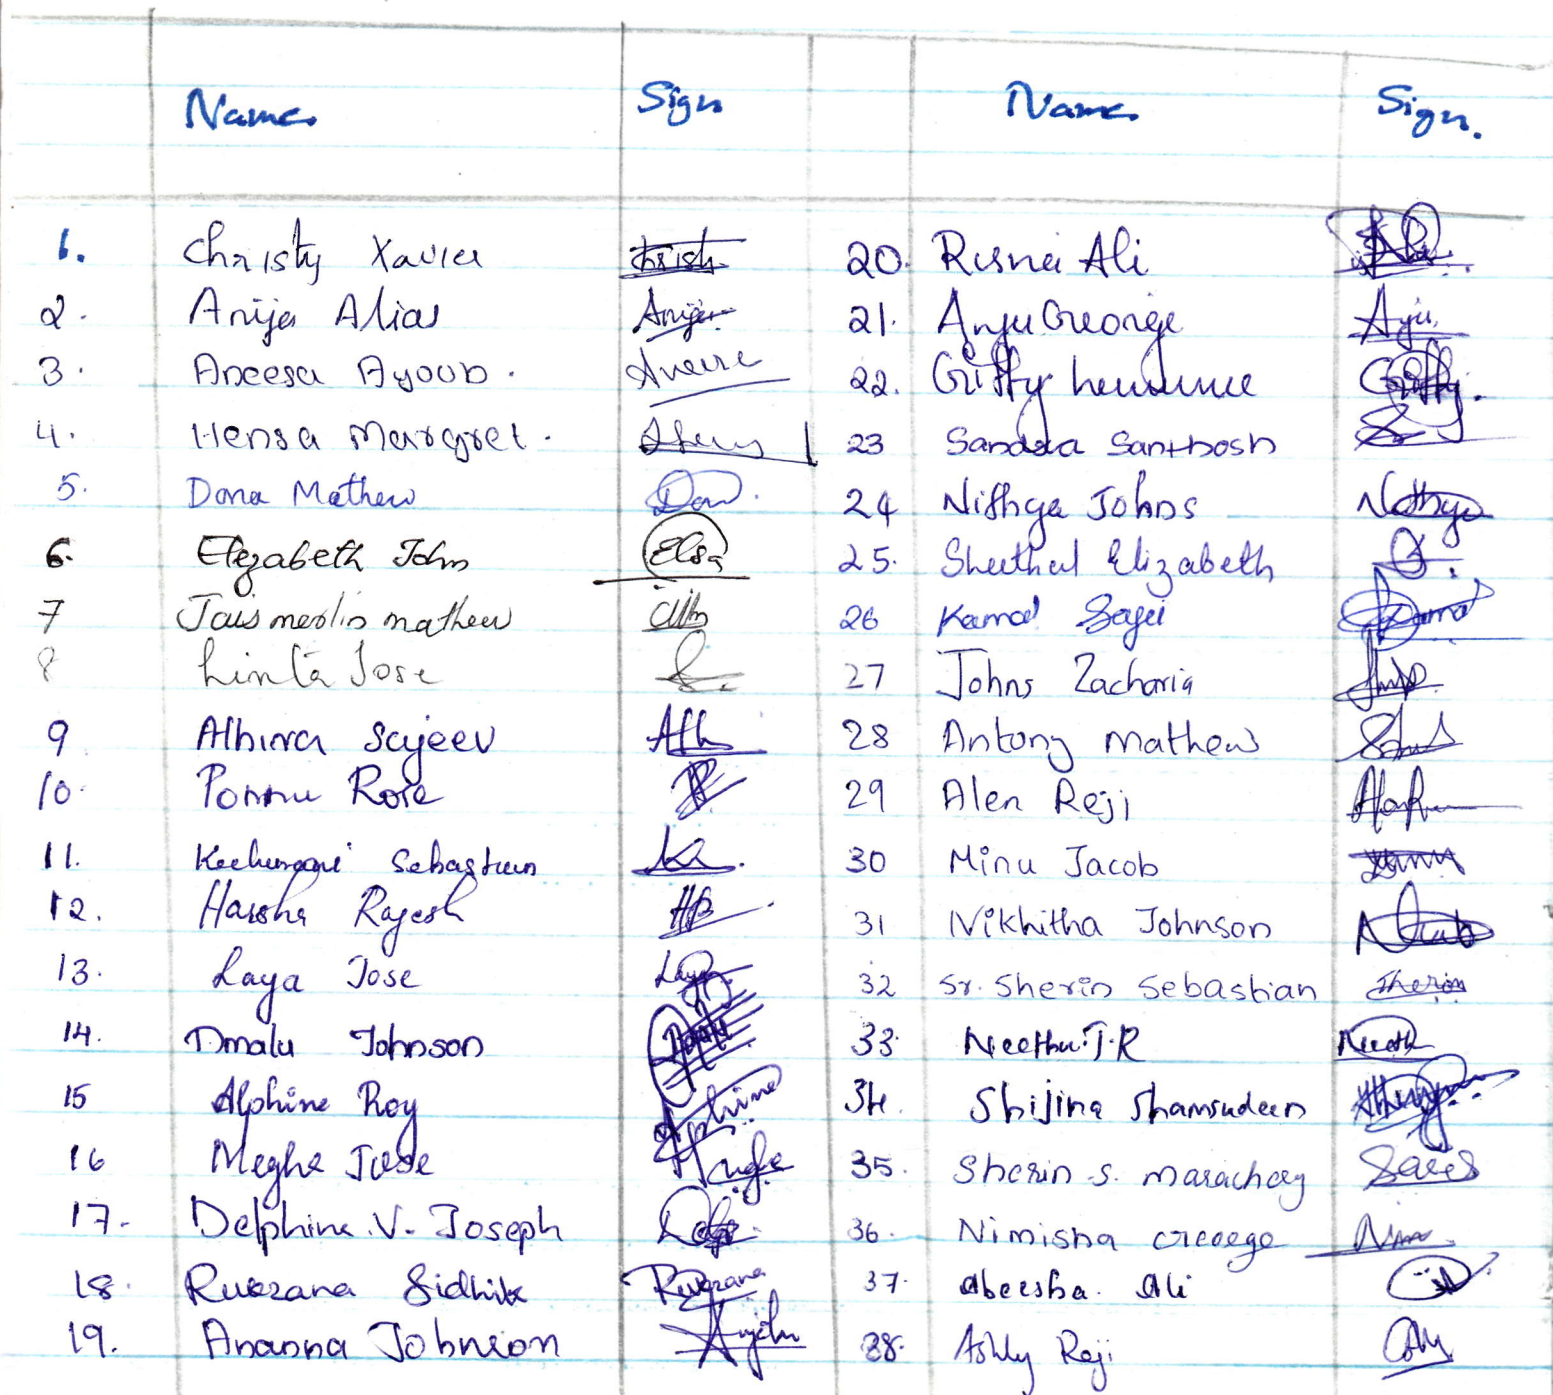 Name Sign Name Sign.
1. Christy Xavier Christy 20. Risna Ali
2. Anija Alias Anija 21. Anju George Anju
3. Aneesa Ayoub. 22. Griffy Lawrence Griffy.
4. Hensa Margret. 23 Sandra Santhosh
5. Dona Mathew Don. 24 Nithya Johns Nithya
6. Elezabeth John Elsa 25. Sheethal Elizabeth
7 Jais merlin mathew 26 Kamal Saji Kamal
8 Linta Jose 27 Johns Zacharia
9 Athira Sajeev Ath 28 Antony Mathew
10. Ponnu Rose 29 Alen Reji
11. Sebastian 30 Minu Jacob
12. Harsha Rajesh 31 Nikhitha Johnson
13. Laya Jose Laya 32 Sr. Sherin Sebastian Sherin
14. Dmalu Johnson 33. Neethu.T.R Neeth
15 Alphine Roy Alphine 34. Shijina Shamsudeen
16 Megha Jose 35. Sherin S. Marachery
17. Delphine.V. Joseph 36. Nimisha George
18. Ruxzana Sidhik Ruxzana 37. Abeesha. Ali
19. Ananna Johnson 38. Ashly Reji